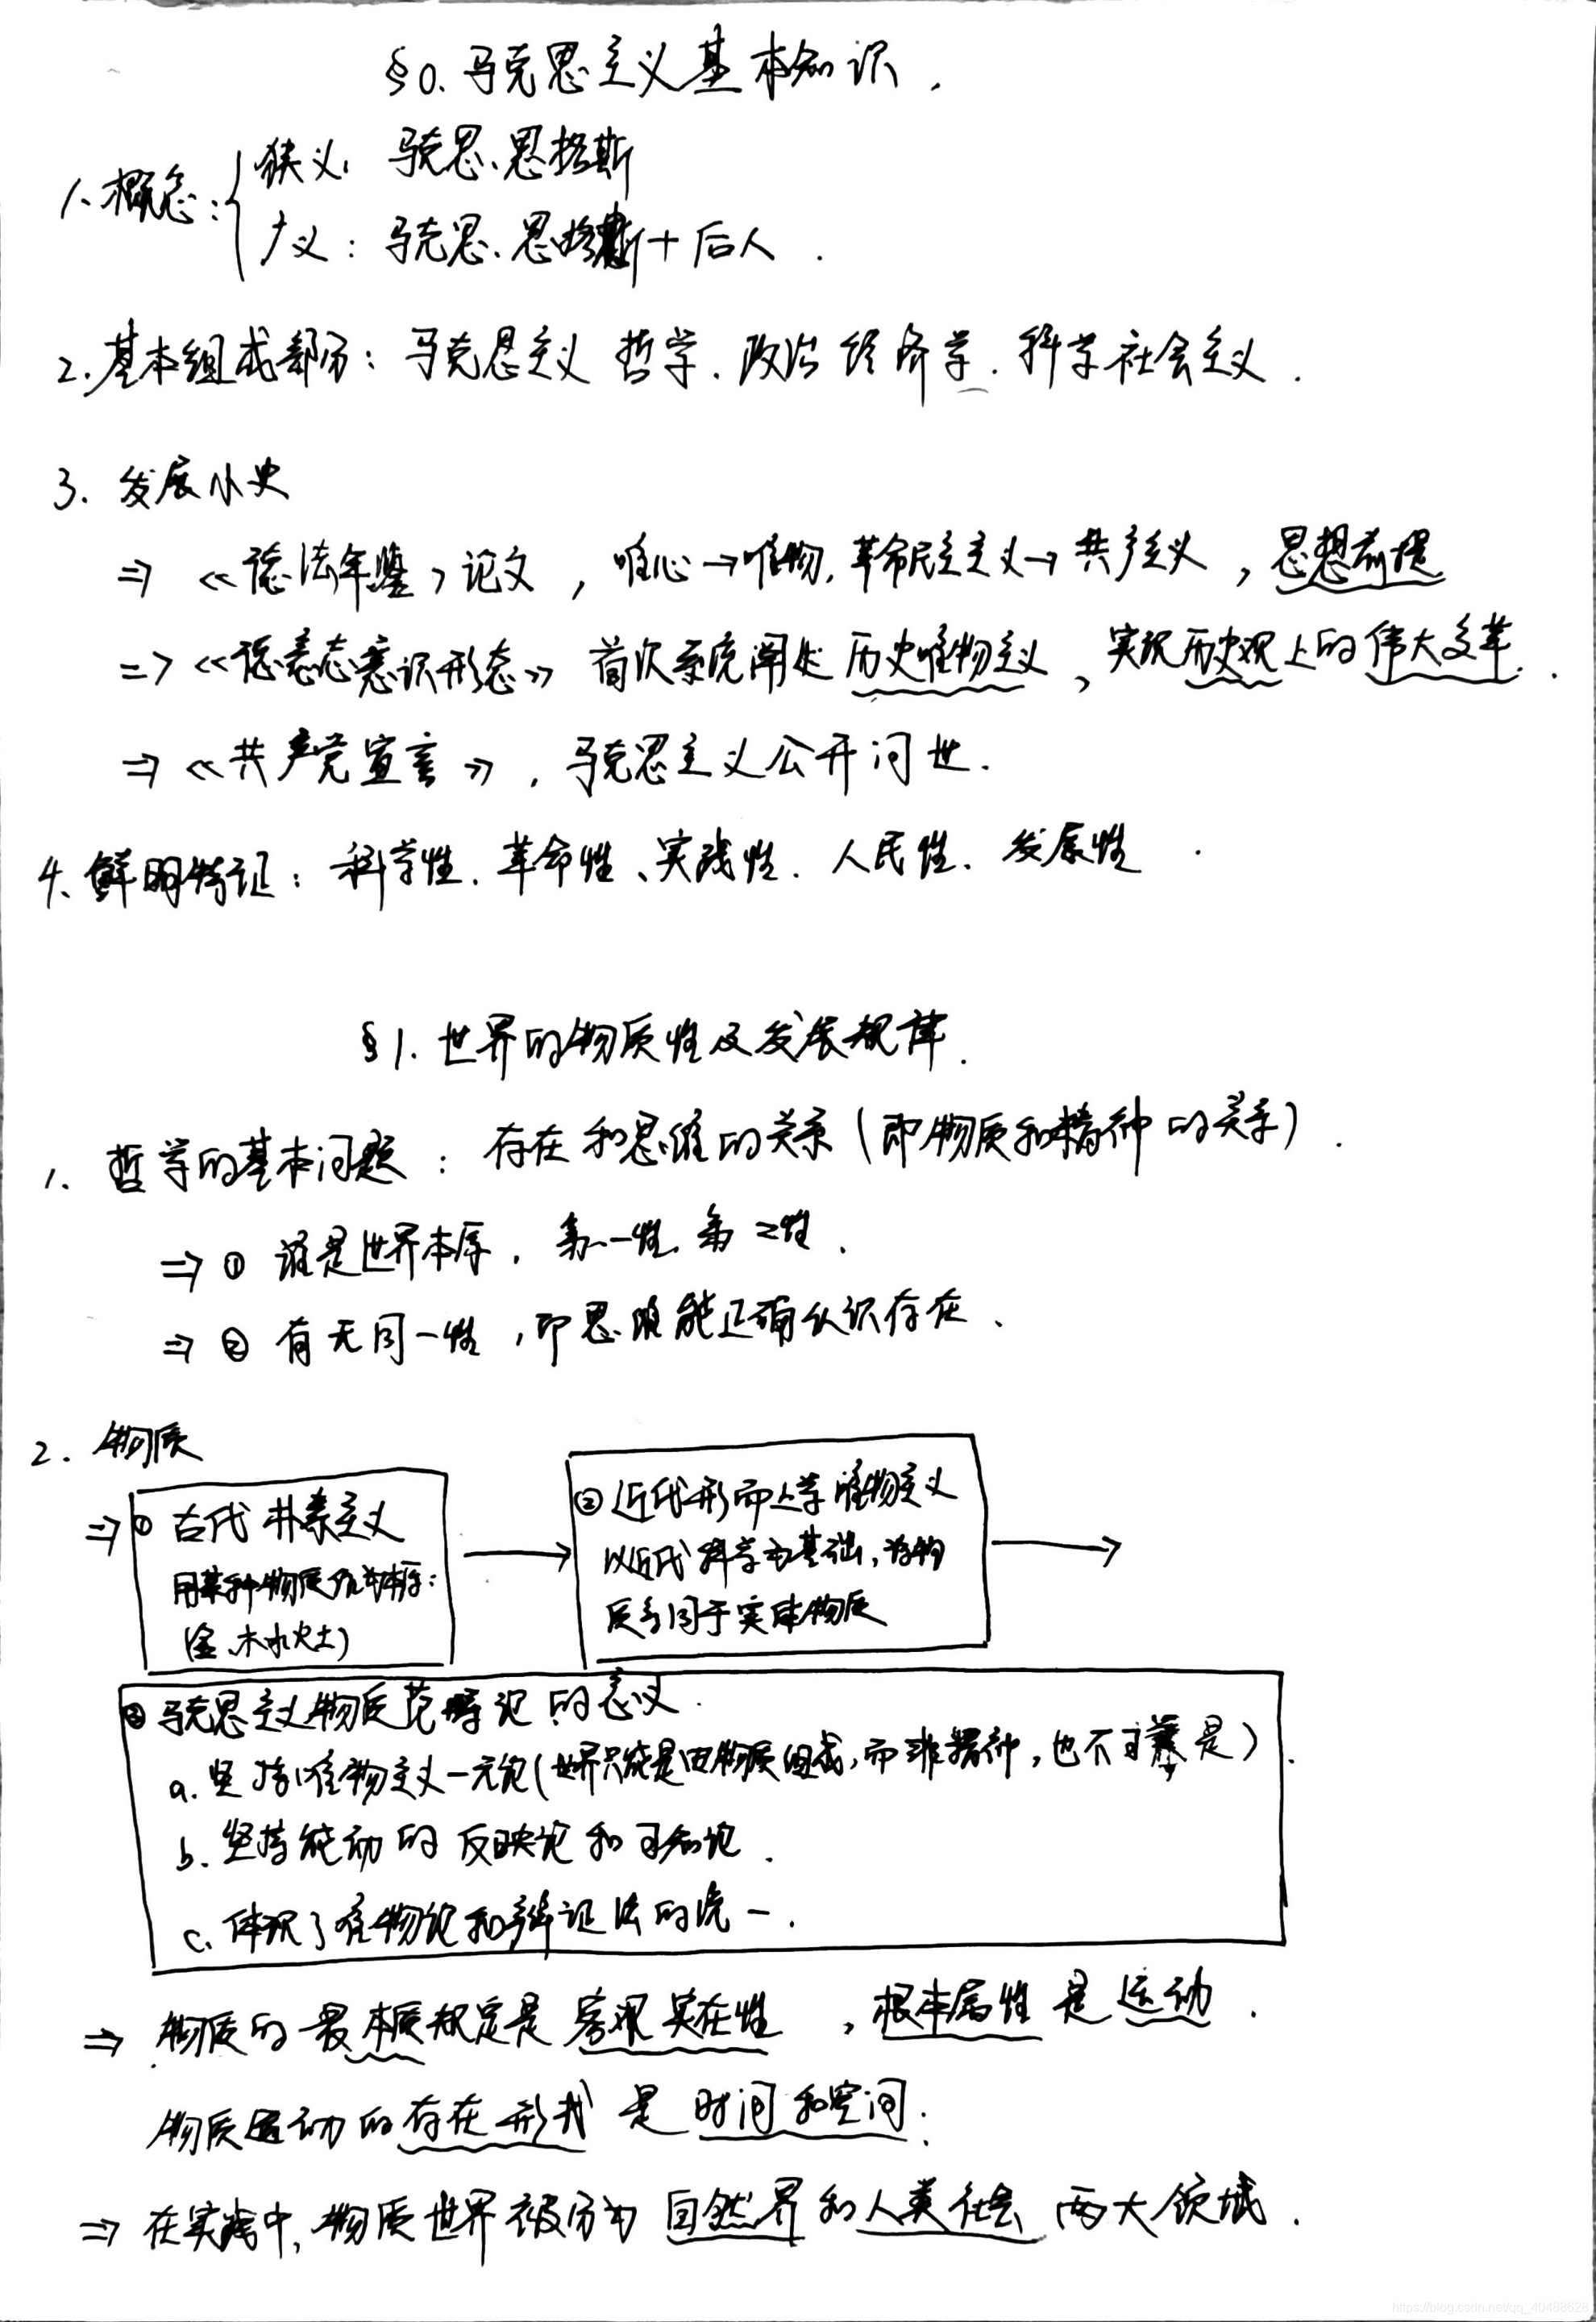 §0. 马克思主义基本知识.
1. 概念: 狭义: 马克思、恩格斯
广义: 马克思、恩格斯+后人.
2. 基本组成部分: 马克思主义哲学. 政治经济学. 科学社会主义.
3. 发展小史
⇒ 《德法年鉴》论文, 唯心→唯物, 革命民主主义→共产主义, 思想前提
⇒ 《德意志意识形态》 首次系统阐述历史唯物主义, 实现历史观上的伟大变革.
⇒ 《共产党宣言》, 马克思主义公开问世.
4. 鲜明特证: 科学性. 革命性、实践性. 人民性. 发展性.
§1. 世界的物质性及发展规律.
1. 哲学的基本问题: 存在和思维的关系(即物质和精神的关系).
⇒ ① 谁是世界本原, 第一性. 第二性.
⇒ ② 有无同一性, 即思维能正确认识存在.
2. 物质
⇒ ① 古代朴素主义
用某种物质 本原:
(金、木水火土)
② 近代形而上学唯物主义
以近代科学为基础, 将物
质等同于实体物质
③ 马克思主义物质范畴论的意义.
a. 坚持唯物主义一元论(世界只能是由物质组成, 而非精神, 也不 是).
b. 坚持能动的反映论和可知论.
c. 体现了唯物论和辩证法的统一.
⇒ 物质的最本质规定是客观实在性, 根本属性是运动.
物质运动的存在形式是时间和空间.
⇒ 在实践中, 物质世界被分为自然界和人类社会两大领域.
https://blog.csdn.net/qq_40488628